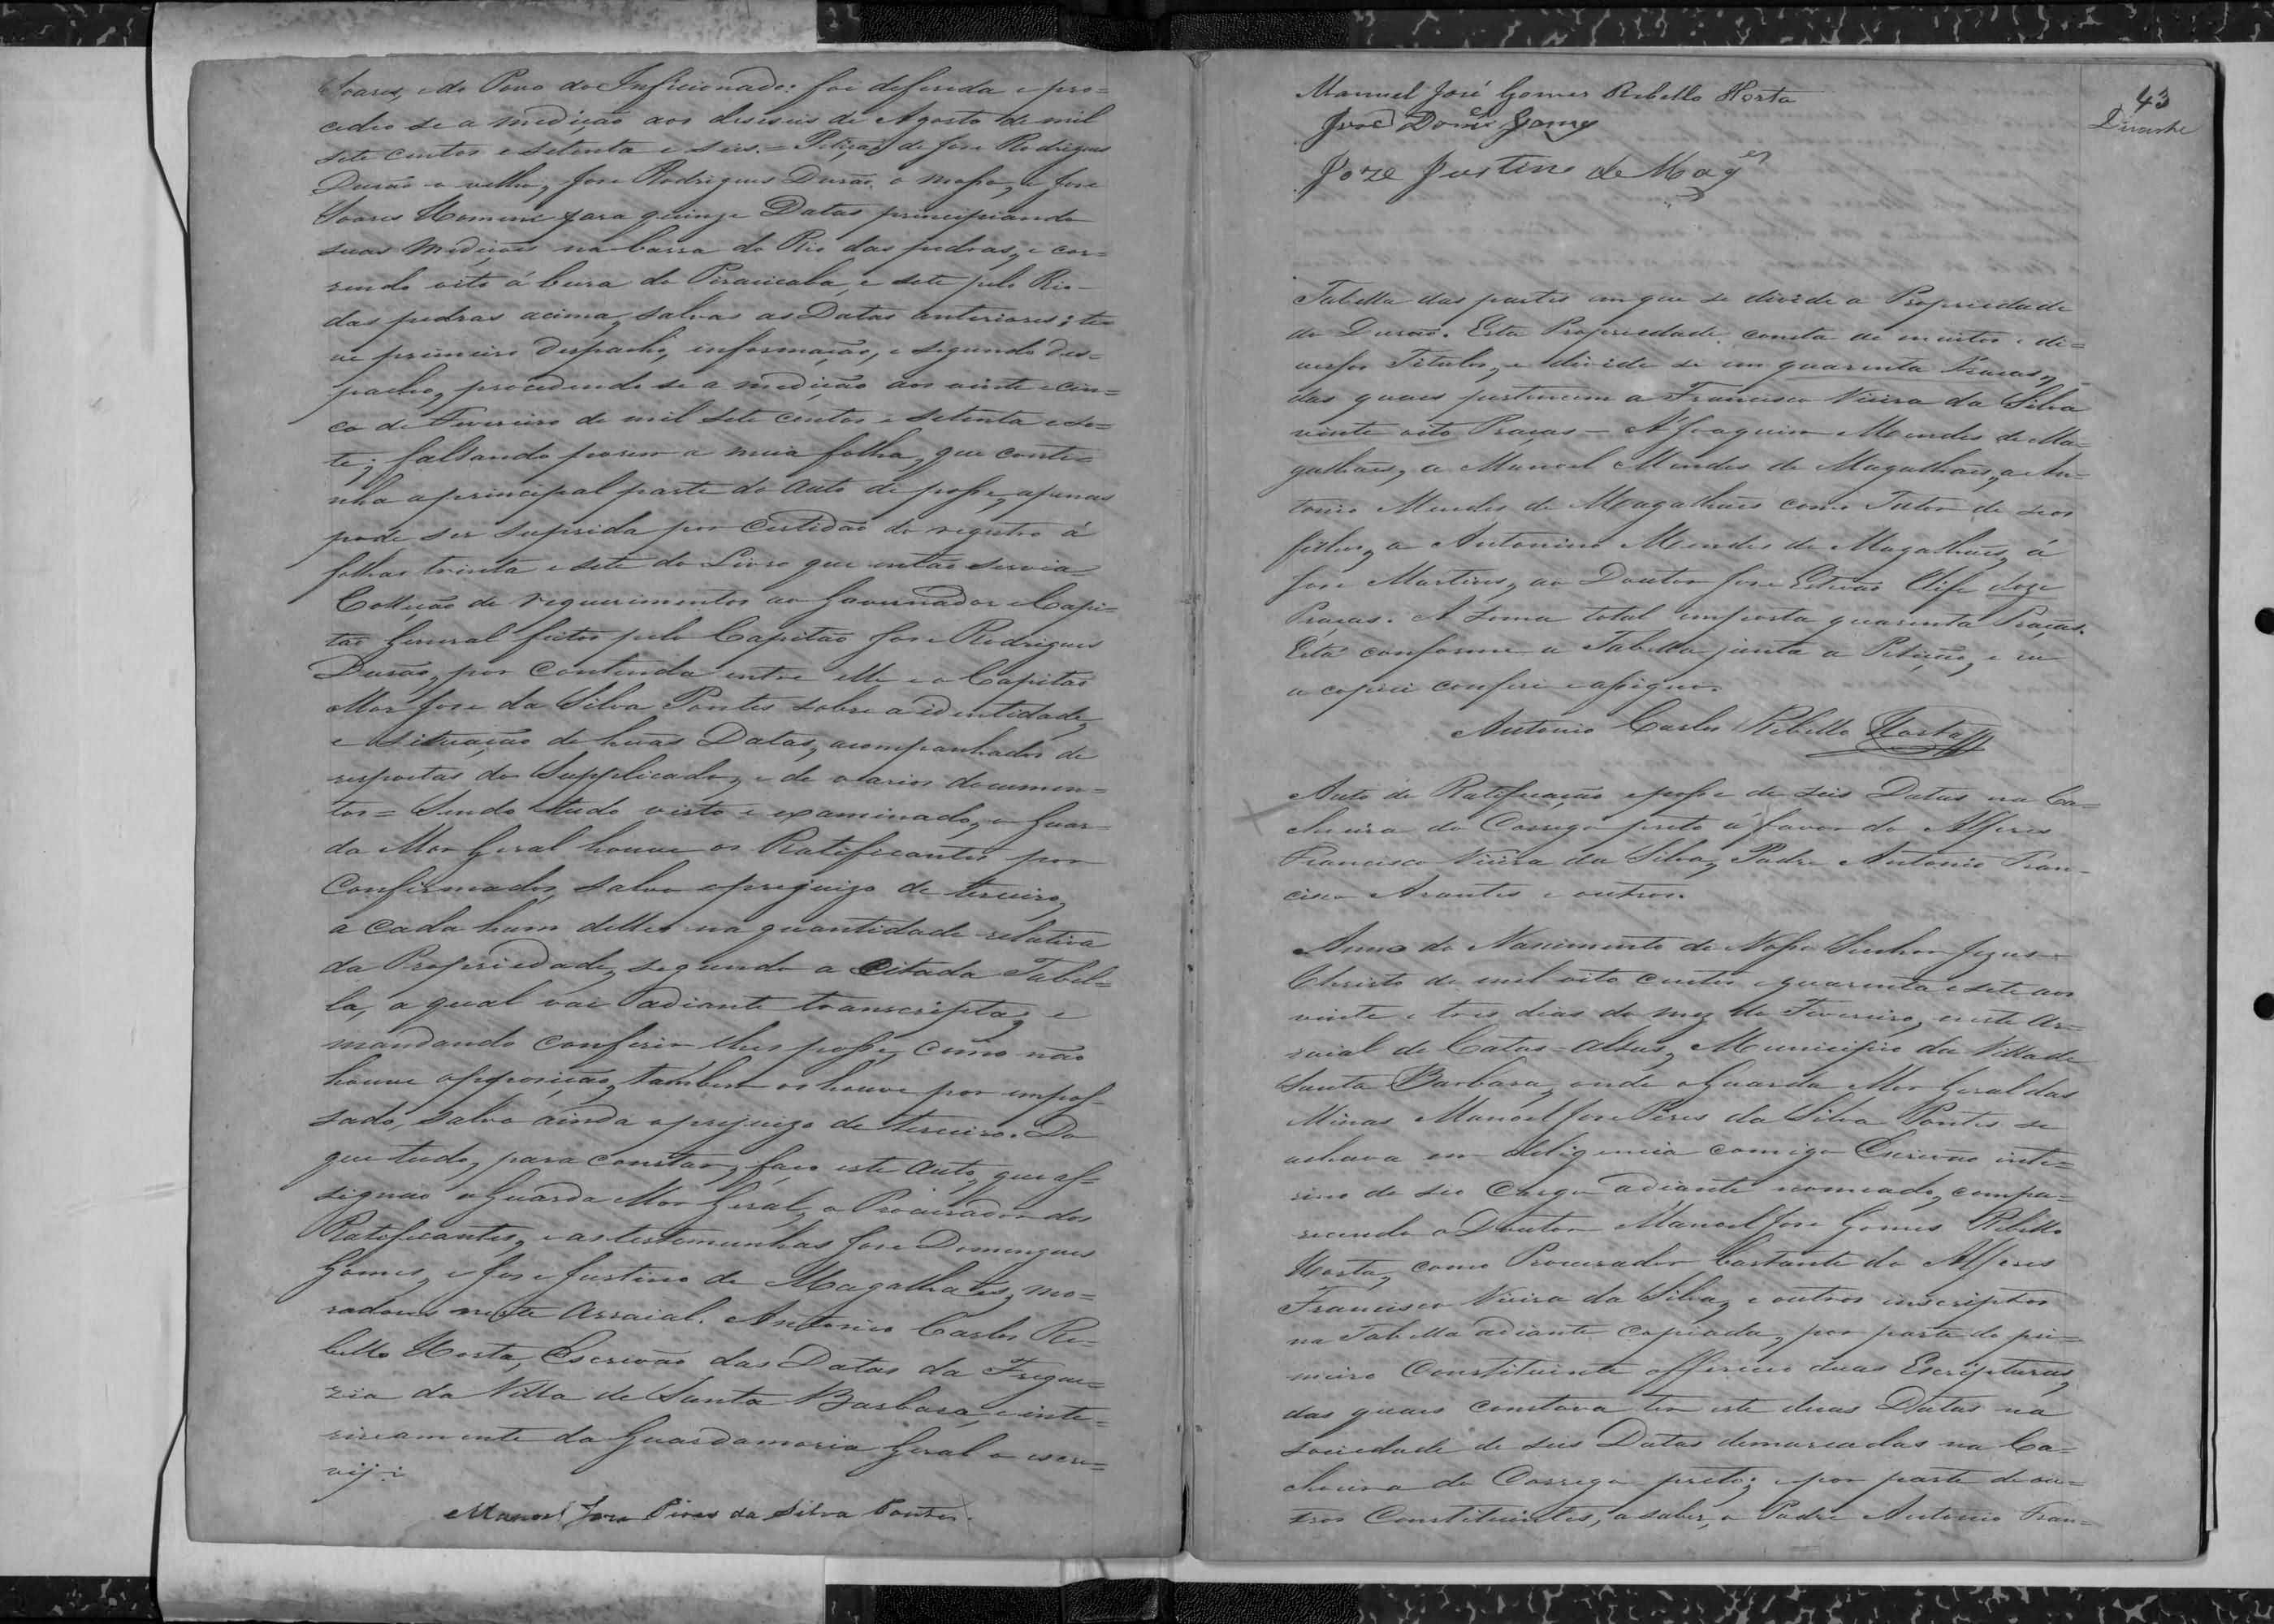 Soares, e do Povo do Inficionado: foi deferida e pro=
cedio se a medição aos deseseis de Agosto de mil
sete centos e setenta e seis. = Petição de Jose Rodrigues
Durão o velho, Jose Rodrigues Durão o moço, e Jose
Soares Homem para quinze Datas principiando
suas medições na barra do Rio das pedras, e cor=
rendo oito á beira do Piracicaba, e sete pelo Rio
das pedras acima, salvas as Datas anteriores; te
ve primeiro despacho, informação, e segundo des=
pacho, procedendo se a medição aos vinte e cin=
co de Fevereiro de mil sete centos e setenta e se=
te; faltando porem a meia folha, que conti=
nha a principal parte do auto de posse, apenas
pode ser suprida por Certidão do registro á
folhas trinta e sete do Livro que então servia
Colleção de requerimentos ao Governador e Capi=
tão General feitos pelo Capitão Jose Rodrigues
Durão, por contenda entre elle e o Capitão
Mor Jose da Silva Pontes sobre a identidade,
e situação de huas Datas, acompanhados de
respostas do Supplicado, e de varios documen=
tos = Sendo tudo visto e examinado, o Guar-
da Mor Geral houve os Ratificantes por
Confirmados, salvo o prejuizo de terceiro,
a cada hum delles na quantidade relativa
da Propriedade, segundo a citada Tabel=
la, a qual vai adiante transcripta, e
mandando conferir lhes posse, como não
houve opposição, tambem os houve por empos-
sado, salvo ainda o prejuizo de terceiro. Do
que tudo, para constar, faço este auto, que as-
signao o Guarda Mor Geral, o Procurador dos
Ratificantes, e as testemunhas Jose Domingues
Gomes, e Jose Justino de Magalhães, mo=
radores neste Arraial. Antonio Carlos Re=
bello Horta, Escrivão das Datas da Fregue=
zia da Villa de Santa Barbara, e inte=
rinamente da Guardamoria Geral o escre=
vij:
Manoel Jose Pires da Silva Pontes.
43
Manuel José Gomes Rebello Horta
José Domes Gomes
Joze Justino de Mages
Tabella das partes em que se divide a Propriedade
do Durão. Esta Propriedade consta de muitos e di=
versos Titulos, e divide se em quarenta Praças,
das quaes pertencem a Francisco Vieira da Silva
vinte oito Praças - A Joaquim Mendes de Ma=
galhães, a Manoel Mendes de Magalhães, a An=
tonio Mendes de Magalhães como Tutor de seos
filhos, a Antonino Mendes de Magalhães, á
Jose Martins, ao Doutor Jose Estevao Clife doze
Praças. A soma total importa quarenta Praças.
Está conforme a Tabella junta a Petição, e eu
a copiei conferi e assigno.
Antonio Carlos Rebello Horta
Auto de Ratificação e posse de seis Datas na Ca=
choeira do Corrego preto á favor do Alferes
Francisco Vieira da Silva, Padre Antonio Fran-
cisco Arantes e outros.
Anno do Nascimento de Nosso Senhor Jezus
Christo de mil oito centos e quarenta e sete aos
vinte e tres dias do mez de Fevereiro, neste Ar=
raial de Catas-altas, Municipio da Villa de
Santa Barbara, onde o Guarda Mor Geral das
Minas Manoel Jose Pires da Silva Pontes se
achava em deligencia comigo Escrivão inte=
rino de seo Cargo adiante nomeado, compa=
recendo o Doutor Manoel Jose Gomes Rebello
Horta, como Procurador bastante do Alferes
Francisco Vieira da Silva, e outros inscriptos
na Tabella adiante copiada, por parte do pri=
meiro Constituinte offereceo duas Escripturas,
das quaes constava ter este duas Datas na
sociedade de seis Datas demarcadas na Ca=
choeira do Corrego preto; e por parte de ou=
tros Constituintes, a saber, o Padre Antonio Fran=